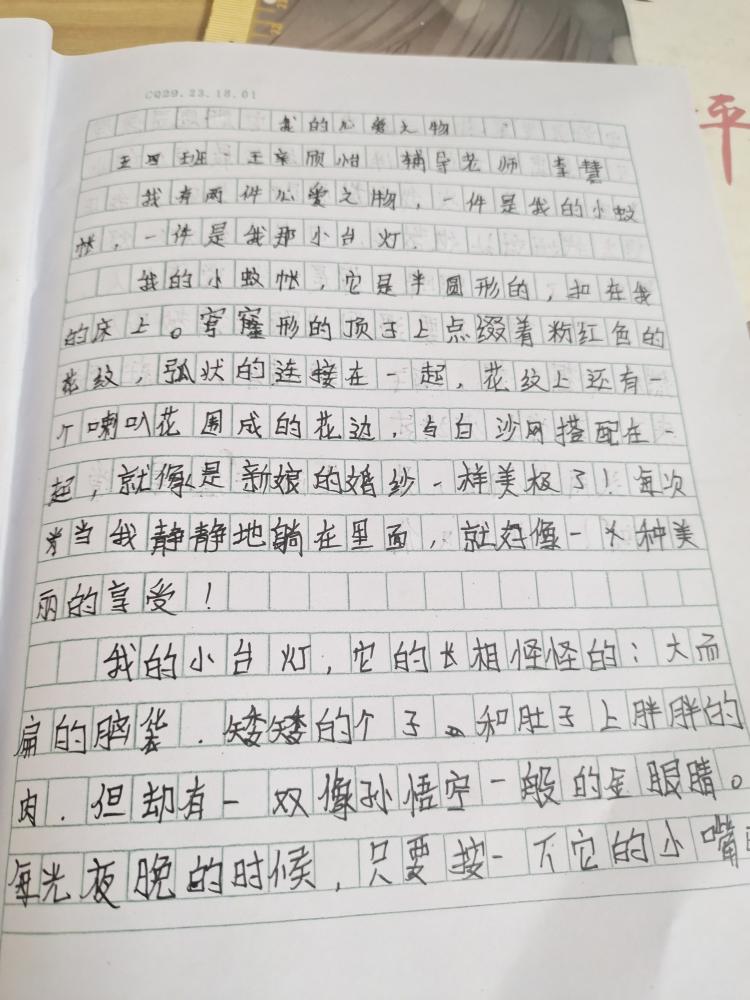 CQ29.23.18.01
我的心爱之物
五四班 王辛欣怡 辅导老师 李慧
我有两件心爱之物，一件是我的小蚊
帐，一件是我那小台灯.
我的小蚊帐，它是半圆形的，扣在我
的床上。穹窿形的顶子上点缀着粉红色的
花纹，弧状的连接在一起，花纹上还有一
个喇叭花围成的花边，与白沙网搭配在一
起，就像是新娘的婚纱一样美极了！每次
当我静静地躺在里面，就好像一种美
丽的享受！
我的小台灯，它的长相怪怪的：大而
扁的脑袋．矮矮的个子。和肚子上胖胖的
肉．但却有一双像孙悟空一般的金眼睛。
每光夜晚的时候，只要按一下它的小嘴
平